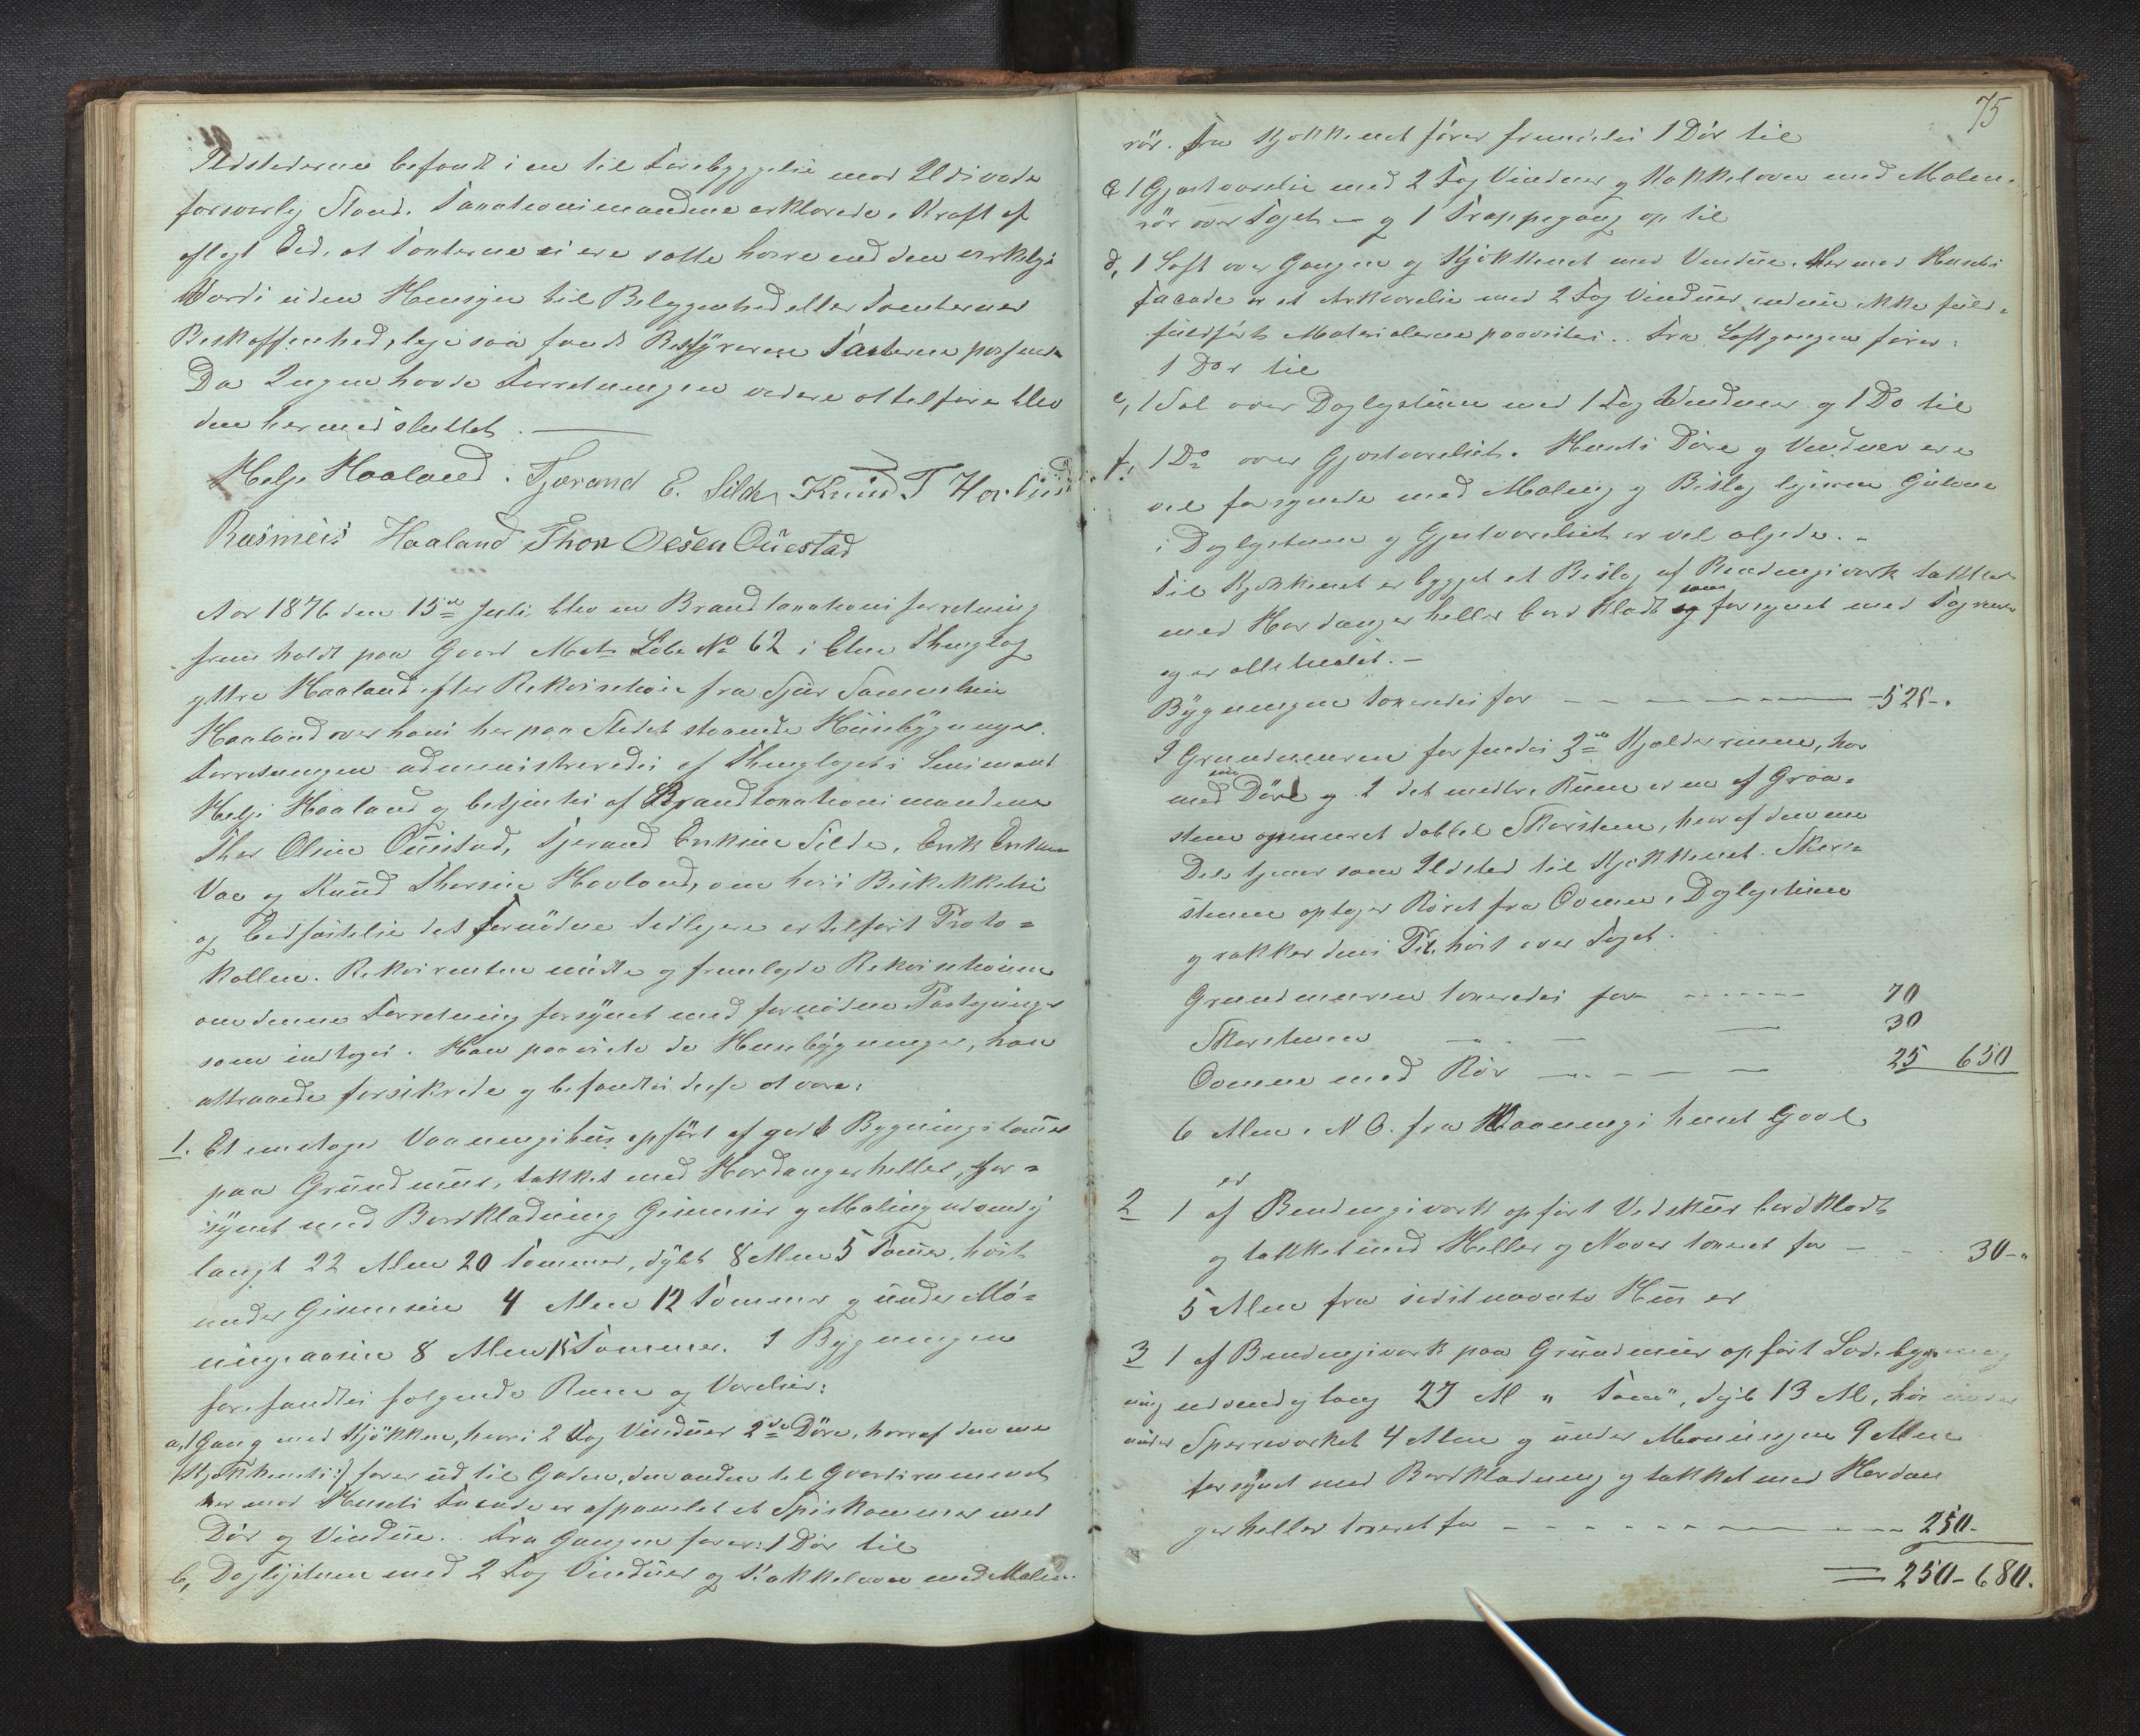 Ildstederne befandt i en til Forebyggelse mod Ildsvaade
forsvarlig Stand. Taxationsmændene erklærede i Kraft af
aflagt Ed, at Taxterne ei ere satte høire end den virkelige
Værdi uden Hensyn til Beliggenhed eller Tomternes
Beskaffenhed, ligesaa fandt Bestyreren Taxterne passende
Da Ingen havde Forretningen videre at tilføre blev
den hermed sluttet.
Helje Haaland. Tjærand E. Silde, Knud T Haaland
Rasmus Haaland Thor Olsen Ouestad
Aar 1876 den 15de Juli blev en Brandtaxationsforretning
fremholdt paa Gaard Mats Løbe No 62 i Etne Thinglag
yttre Haaland efter Rekvisition fra Sjur Samuelsen
Haaland over hans her paa Stedet staaende Huusbygninger.
Forretningen administreredes af Thinglagets Lensmand
Helje Haaland og betjentes af Brandtaxationsmændene
Thor Olsen Ouestad, Tjerand Eriksen Silde, Erik Eriksen
Vae og Knud Thorsen Haaland, om hvis Beskikkelse
og Eedfæstelse det fornødne tidligere er tilført Proto=
kollen. Rekvirenten mødte og fremlagde Rekvisitionen
om denne Forretning forsynet med fornøden Paategninger
som indtages. Han paaviste de Huusbygninger, han
attraaede forsikrede og befandtes disse at være:
1. Et eenetages Vaaningshus opført af godt Bygningstømmer
paa Grundmuur, tækket med Hardangerheller, for=
synet med Bordklædning Gesimser og Maling udvendig
langt 22 Alen 20 Tommer, dybt 8 Alen 5 Tommer, høit
under Gesimsen 4 Alen 12 Tommer og under Mø=
ningsaasen 8 Alen 15 Tommer. I Bygningen
forefandtes følgende Rum og Værelser:
a, 1 Gang med Kjøkken, hvori 2 Fag Vinduer 2de Døre, hvoraf den ene
(Kjøkkenets:) fører ud til Gaden, den anden til Gaardsrummet
her mod Husets Facade er afpanelet et Spiskammer med
Dør og Vindue. Fra Gangen fører: 1 Dør til
b, Dagligstuen med 2 Fag Vinduer og Kakkelovn med Malm-
75
rør. Fra Kjøkkenet fører fremdeles 1 Dør til
c 1 Gjæstværelse med 2 Fag Vinduer og Kakkelovn med Malm-
rør over Taget – og 1 Trappegang op til
d, 1 Loft over Gangen og Kjøkkenet med Vindue. Her mod Husets
Facade er et Arkværelse med 2 Fag Vinduer, endnu ikke fuld=
fuldført Materialerne paavistes.. Fra Loftgangen fører:
1 Dør til
e, 1 Sal over Dagligstuen med 1 Fag Vinduer og 1 Do til
f. 1 Do over Gjæstværelset. Husets Døre og Vinduer ere
vel forsynede med Maling og Beslag ligesom Gulvene
i Dagligstuen og Gjæstværelset er vel oljede. –
Til Kjøkkenet er bygget et Bislag af Bindingsværk tækket
med Hardangerheller bordklædt som og forsynet med Tagrender
og er alt malet. –
Bygningen taxeredes for – – – – – – – 525-.
I Grundmuren forfindes 2de Kjælderrumme, hver
med sin Dør og I det midtre Rum er en af Graa=
steen opmuret dobbel Skorsten, hvoraf den ene
Del tjener som Ildsted til Kjøkkenet. Skor=
stenen optager Røret fra Ovnen i Dagligstuen
og rækker dens Til. høit over Taget.
Grundmuren taxeredes for – – – – – – 70
Skorstenen – – – – 30
Ovnene med Rør – – – – 25 650
6 Alen i N O. fra Vaaningshuset Gavl
er
2 1 af Bindingsværk opført Vedskuur bordklædt
og tækket med Heller og Næver taxeret for – – 30-"
5 Alen fra sidstnævnte Hus er
3 1 af Bindingsværk paa Grundmuur opført Ladebygning
ning udvendig lang 27 Al " Tom", dyb 13 Al, høi under
under Sperreværket 4 Alen og under Møningen 9 Alen
forsynet med Bordklædning og tækket med Hardan
gerheller taxeret for – – – – – – – 250-
= 250 - 680.